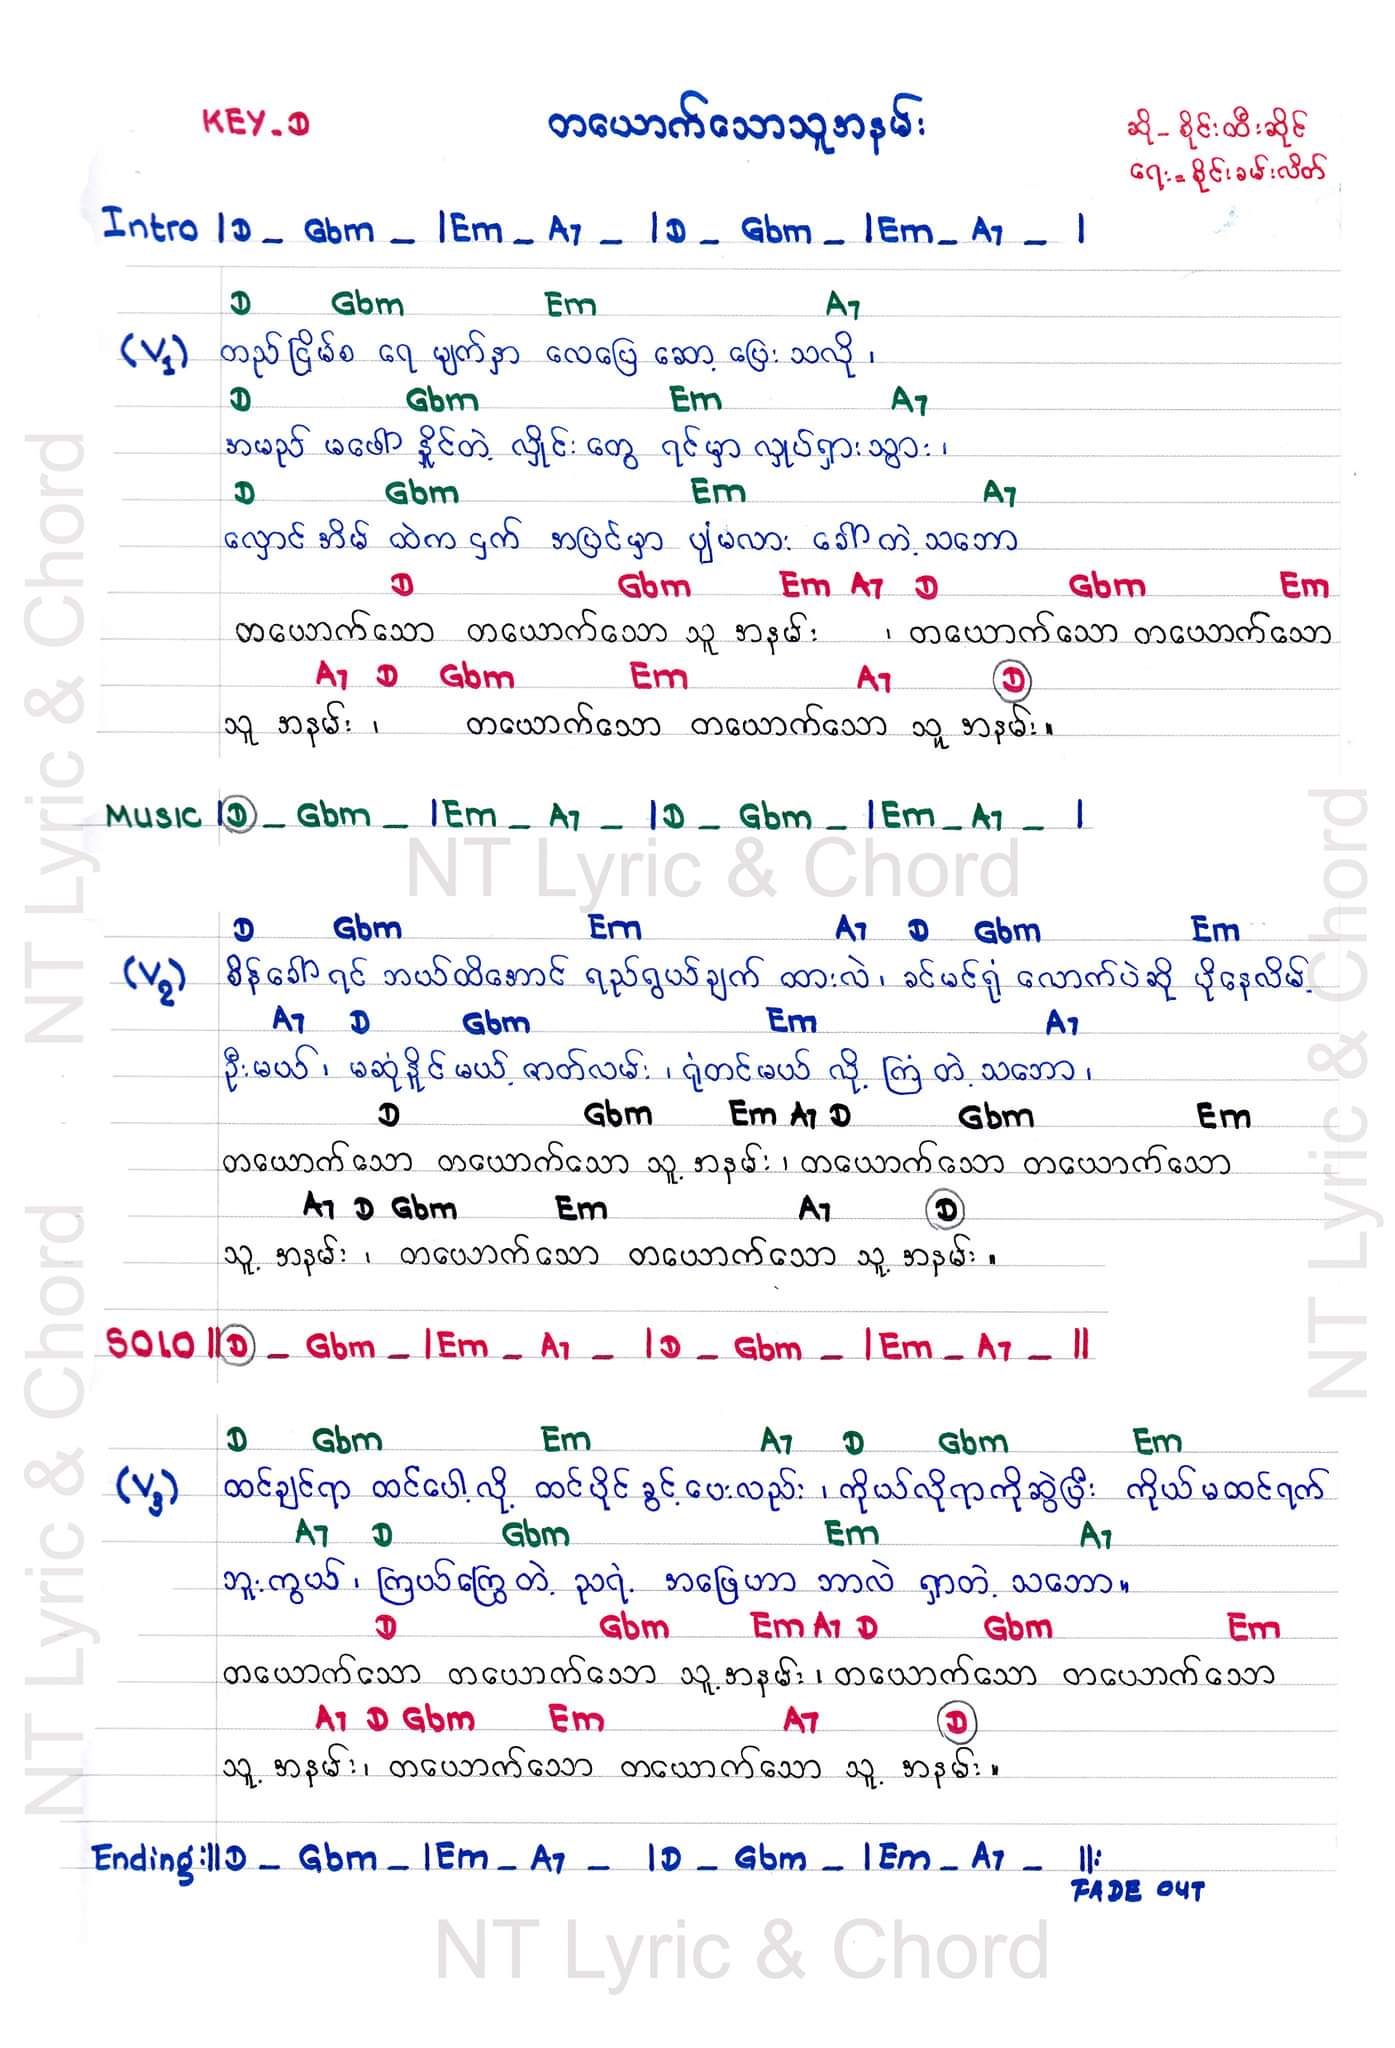 KEY - D
တယောက်သောသူအနမ်း
ဆို - စိုင်းထီးဆိုင်
ရေး = စိုင်းခမ်းလိတ်
Intro | D _ Gbm _ | Em _ A7 _ | D _ Gbm _ | Em _ A7 _ |
D Gbm Em A7
(V1) တည်ငြိမ်စ ရေ မျက်နှာ လေပြေ ဆော့ ပြေး သလို ၊
D Gbm Em A7
အမည် မဖေါ် နိူင်တဲ့ လှိုင်း တွေ ရင်မှာ လှုပ်ရှား သွား ၊
D Gbm Em A7
လှောင် အိမ် ထဲက ငှက် အပြင်မှာ ပျံမလား ခေါ်တဲ့ သဘော
D Gbm Em A7 D Gbm Em
တယောက်သော တယောက်သော သူ အနမ်း ၊ တယောက်သော တယောက်သော
A7 D Gbm Em A7 D
သူ အနမ်း ၊ တယောက်သော တယောက်သော သူ အနမ်း ။
MUSIC | D _ Gbm _ | Em _ A7 _ | D _ Gbm _ | Em _ A7 _ |
NT Lyric & Chord
D Gbm Em A7 D Gbm Em
(V2) စိန်ခေါ်ရင် ဘယ်ထိအောင် ရည်ရွယ်ချက် ထားလဲ ၊ ခင်မင်ရုံ လောက်ပဲဆို ပိုနေလိမ့်
A7 D Gbm Em A7
ဦးမယ် ၊ မဆုံနိူင်မယ့် ဇာတ်လမ်း ၊ ရုံတင်မယ် လို့ ကြံ တဲ့ သဘော ၊
D Gbm Em A7 D Gbm Em
တယောက်သော တယောက်သော သူ့ အနမ်း ၊ တယောက်သော တယောက်သော
A7 D Gbm Em A7 D
သူ့ အနမ်း ၊ တယောက်သော တယောက်သော သူ့ အနမ်း ။
SOLO || D _ Gbm _ | Em _ A7 _ | D _ Gbm _ | Em _ A7 _ ||
D Gbm Em A7 D Gbm Em
(V3) ထင်ချင်ရာ ထင်ပေါ့လို့ ထင်ပိုင်ခွင့်ပေးလည်း ၊ ကိုယ်လိုရာကိုဆွဲပြီး ကိုယ်မထင်ရက်
A7 D Gbm Em A7
ဘူးကွယ် ၊ ကြယ်ကြွေတဲ့ ညရဲ့ အဖြေဟာ ဘာလဲ ရှာတဲ့ သဘော ။
D Gbm Em A7 D Gbm Em
တယောက်သော တယောက်သော သူ့ အနမ်း ၊ တယောက်သော တယောက်သော
A7 D Gbm Em A7 D
သူ့ အနမ်း ၊ တယောက်သော တယောက်သော သူ့ အနမ်း ။
Ending :|| D _ Gbm _ | Em _ A7 _ | D _ Gbm _ | Em _ A7 _ ||:
FADE OUT
NT Lyric & Chord
NT Lyric & Chord
NT Lyric & Chord
NT Lyric & Chord